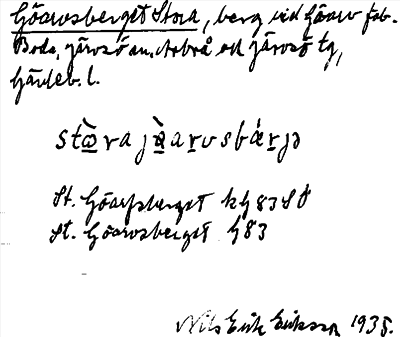 Göarvsberget Stora, berg vid Göarv fab.
Bodo, Järvsö sn, Arbrå och Järvsö tg,
Gävleb. l.
stὼ̱ra jä̱̀aṟvsbáṟjə
St. Göarfsberget kg 83 SO
St. Göarvsberget G83
Nils Erik Eriksson 1935.